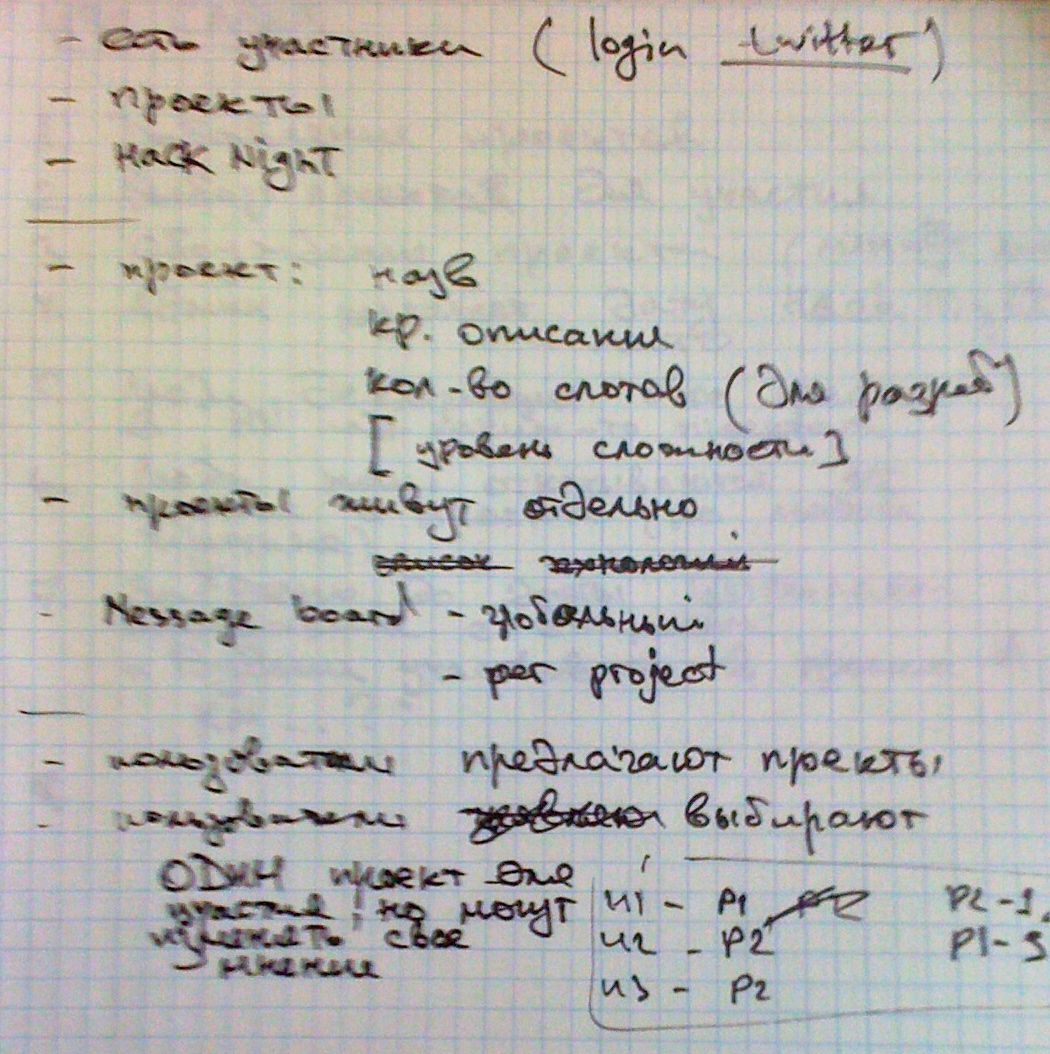 - есть участники (login twitter)
- проекты
- Hack Night
- проект: назв
кр. описание
кол-во слотов (для разраб)
[уровень сложности]
- проекты живут отдельно
список технологий
- Message board - глобальный
- per project
- пользователи предлагают проекты
- пользователи выбирают
один проект для
участия, но могут
изменять свое
мнение
u1 - P1 P2 P2-1
u2 - P2 P1-3
u3 - P2